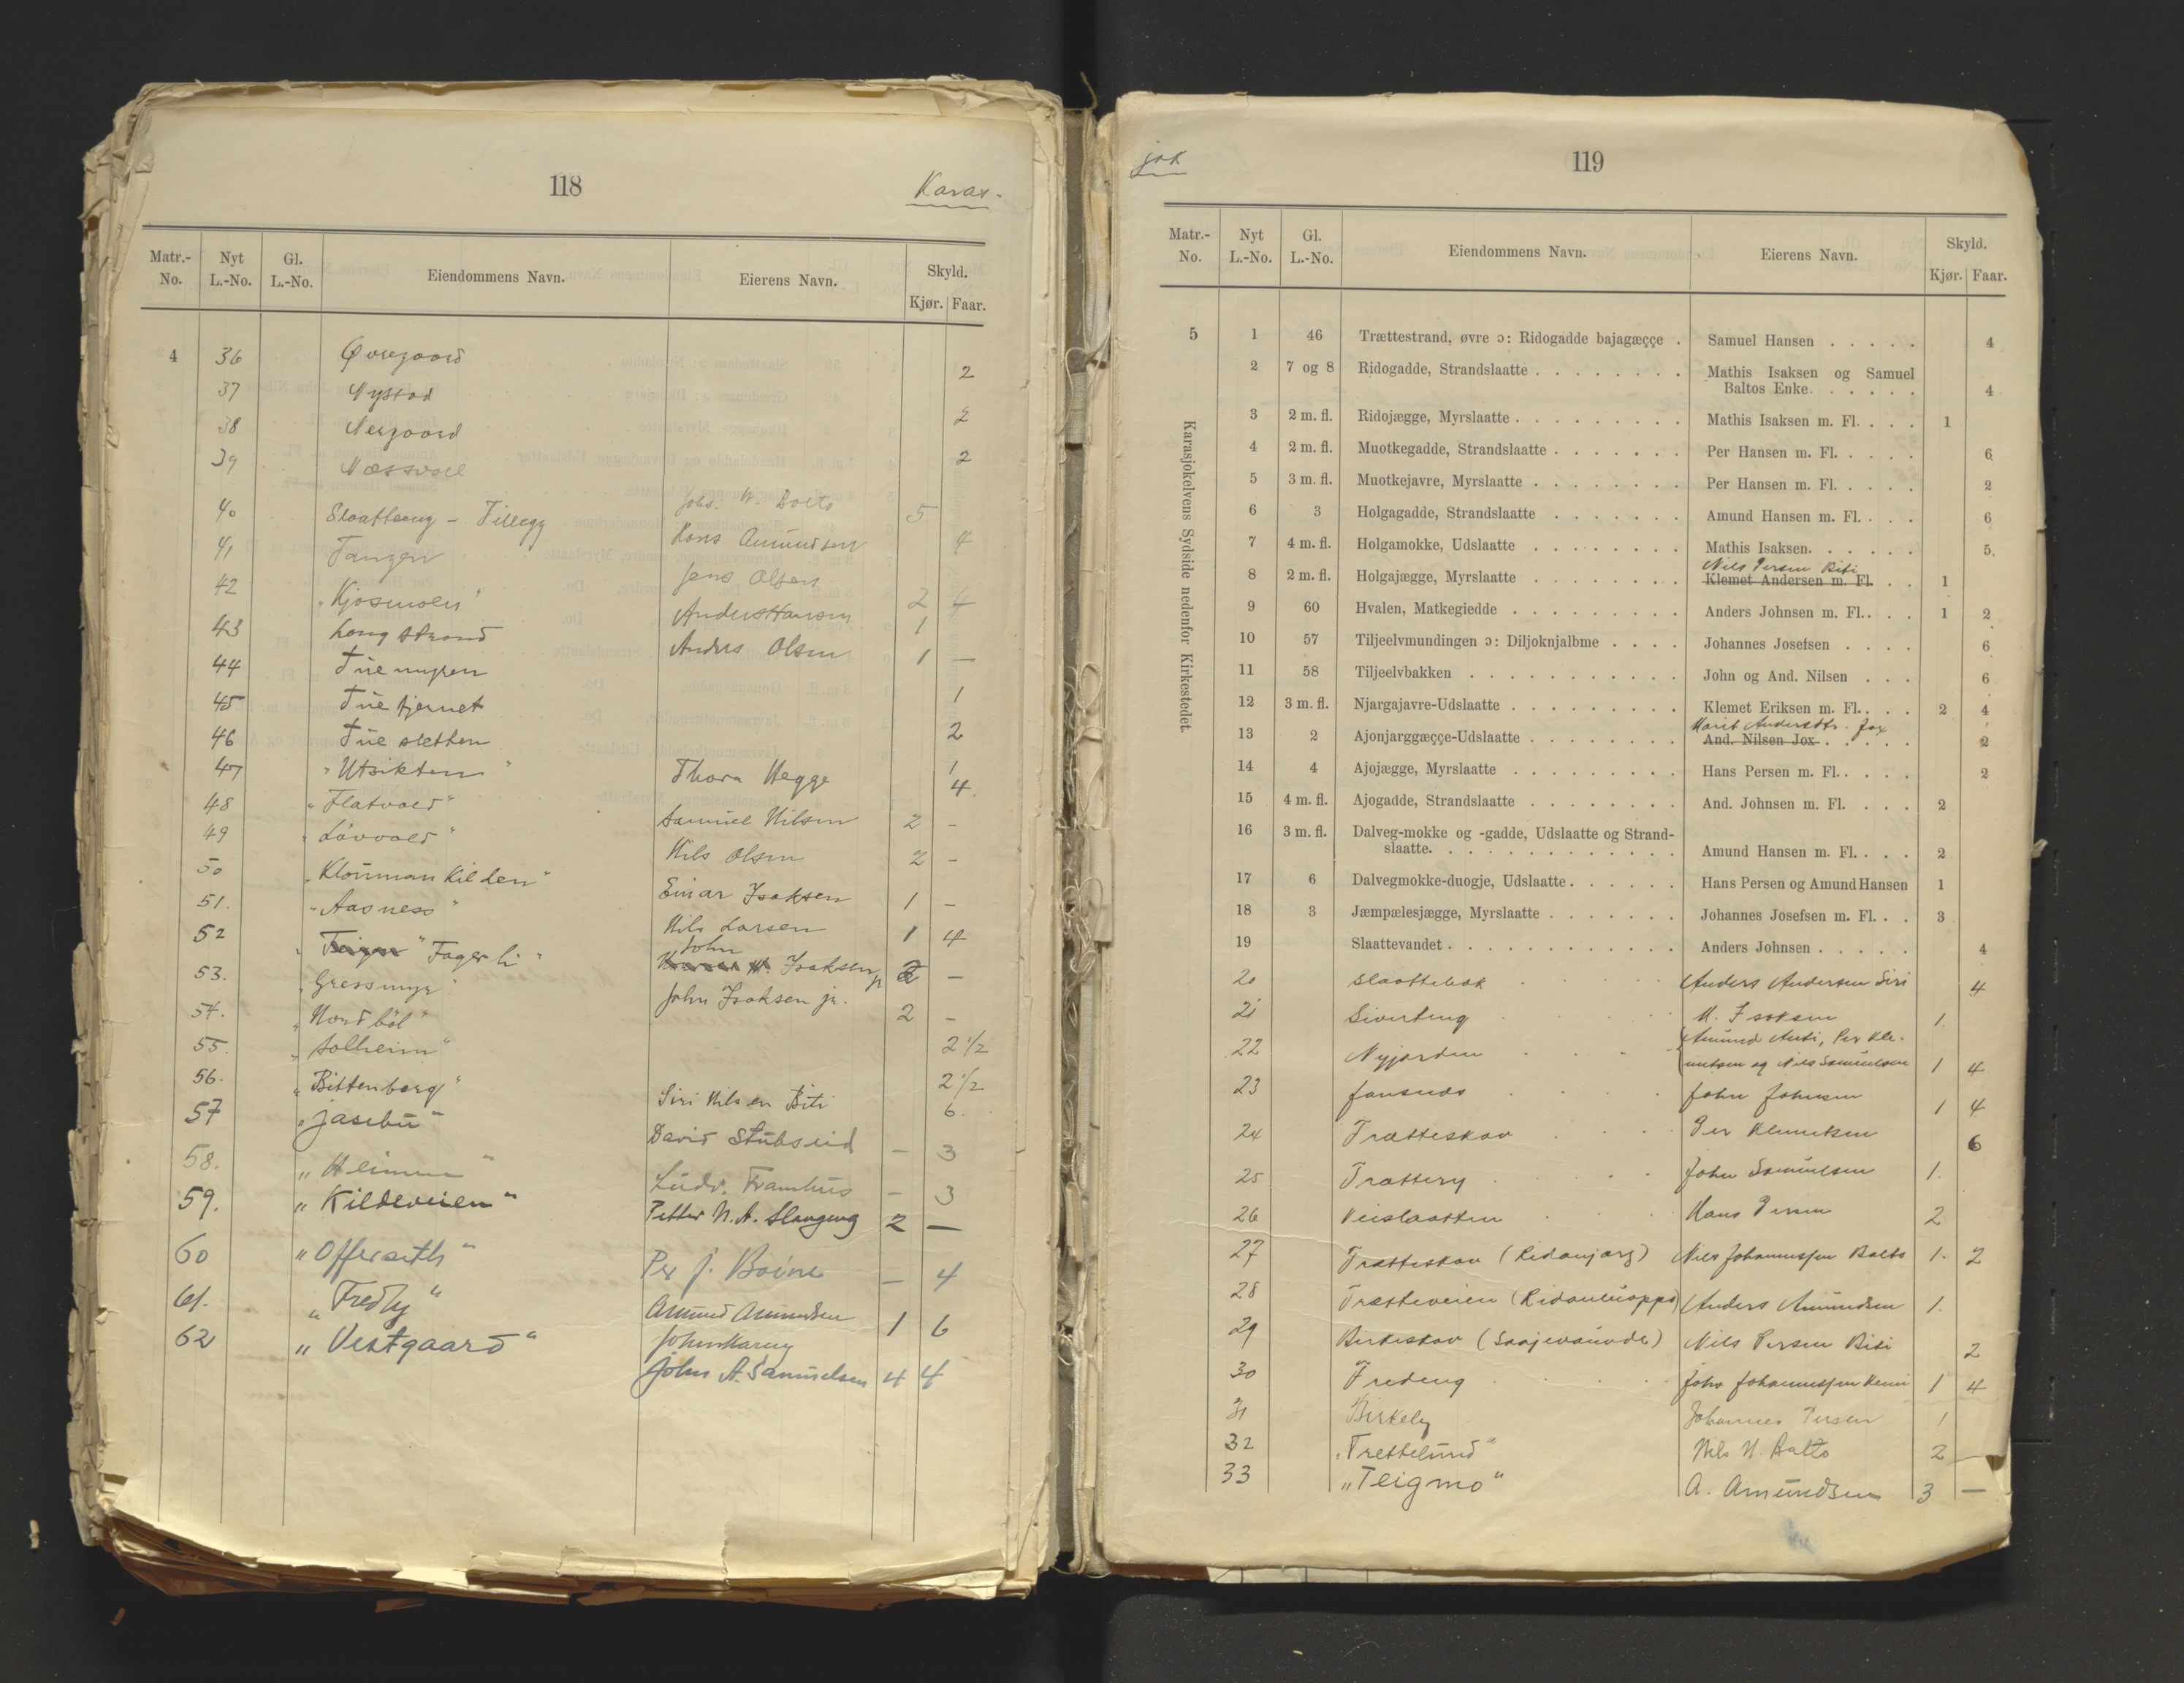 118
Karas-
Matr.-No. Nyt L.-No. Gl. L.-No. Eiendommens Navn. Eierens Navn. Skyld. Kjør. Faar.
4 36 Øvregaard 2
37 Nystad 2
38 Nergaard 2
39 Næssvoll
40 Slaatteng - Tillegg Johs. N. Balto 5
41 Tangen Hans Amundsen 4
42 "Kjosmoen" Jens Olsen 2 4
43 Langstrand Anders Hansen 1
44 Tuemyren Anders Olsen 1 —
45 Tuetjernet 1
46 Tuesletten 2
47 "Utsikten" Thora Hegge 1 4
48 "Flatvold" Samuel Nilsen 2 -
49 "Løvvold" Nils Olsen 2 -
50 "Klommankilden" Einar Isaksen 1 -
51. "Aasness" Nils Larsen 1 4
52 "Fagerli" John Isaksen jr 2 —
53. "Gressmyr" John Isaksen jr. 2 -
54. "Nordbøl"
55. "Solheim" 2 1/2
56. "Bittenborg" Siri Nilsen Biti 2 1/2
57 "Jasebu" David Stubseid 6.
58. "Heimen" Ludv. Framhus - 3
59. "Kildeveien" Petter N. A. Slangeng 2 —
60 "Offerseth" Per J. Boine - 4
61. "Fredly" Amund Amundsen 1 6
62 "Vestgaard" John A. Samuelsen 4 4
jok
119
Matr.-No. Nyt L.-No. Gl. L.-No. Eiendommens Navn. Eierens Navn. Skyld. Kjør. Faar.
Karasjokelvens Sydside nedenfor Kirkestedet.
5 1 46 Trættestrand, øvre ɔ: Ridogadde bajagæççe . Samuel Hansen . . . . . 4
2 7 og 8 Ridogadde, Strandslaatte . . . . . . . . Mathis Isaksen og Samuel
Baltos Enke. . . . . . 4
3 2 m. fl. Ridojægge, Myrslaatte . . . . . . . . . Mathis Isaksen m. Fl. . . . 1
4 2 m. fl. Muotkegadde, Strandslaatte . . . . . . . Per Hansen m. Fl. . . . . 6
5 3 m. fl. Muotkejavre, Myrslaatte . . . . . . . . Per Hansen m. Fl. . . . . 2
6 3 Holgagadde, Strandslaatte . . . . . . . Amund Hansen m. Fl. . . . 6
7 4 m. fl. Holgamokke, Udslaatte . . . . . . . . Mathis Isaksen. . . . . . 5
Nils Persen Biti
8 2 m. fl. Holgajægge, Myrslaatte . . . . . . . . Klemet Andersen m. Fl. . . 1
9 60 Hvalen, Matkegiedde . . . . . . . . . Anders Johnsen m. Fl. . . . 1 2
10 57 Tiljeelvmundingen ɔ: Diljoknjalbme . . . . Johannes Josefsen . . . . 6
11 58 Tiljeelvbakken . . . . . . . . . . . John og And. Nilsen . . . 6
12 3 m. fl. Njargajavre-Udslaatte . . . . . . . . . Klemet Eriksen m. Fl. . . . 2 4
Marit Andersdtr. Jox
13 2 Ajonjarggæççe-Udslaatte . . . . . . . . And. Nilsen Jox . . . . . 2
14 4 Ajojægge, Myrslaatte . . . . . . . . . Hans Persen m. Fl. . . . . 2
15 4 m. fl. Ajogadde, Strandslaatte . . . . . . . . And. Johnsen m. Fl. . . . 2
16 3 m. fl. Dalveg-mokke og -gadde, Udslaatte og Strand-
slaatte. . . . . . . . . . . . . Amund Hansen m. Fl. . . . 2
17 6 Dalvegmokke-duogje, Udslaatte . . . . . . Hans Persen og Amund Hansen 1
18 3 Jæmpælesjægge, Myrslaatte . . . . . . . Johannes Josefsen m. Fl. . . 3
19 Slaattevandet . . . . . . . . . . . . Anders Johnsen . . . . . 4
20 Slaattebak Anders Andersen Siri 4
21 Siverteng N. Isaksen 1
22 Nyjorden Amund Anti, Per Kle-
metsen og Nils Samuelsen 1 4
23 Jansnes John Johnsen 1 4
24 Trætteskov Per Klemetsen 6
25 Trættery John Samuelsen 1.
26 Veislaatten Hans Persen 2
27 Trætteskov (Ridonjarg) Nils Johannessen Balto 1. 2
28 Trætteveien (Ridonluoppo) Anders Amundsen 1.
29 Birkeskov (Saajevuovde) Nils Persen Biti 2
30 Fredeng Johs Johannessen 1 4
31 Birkely Johannes Persen 1
32 "Trettelund" Nils N. Balto 2 —
33 "Teigmo" A. Amundsen 3 —